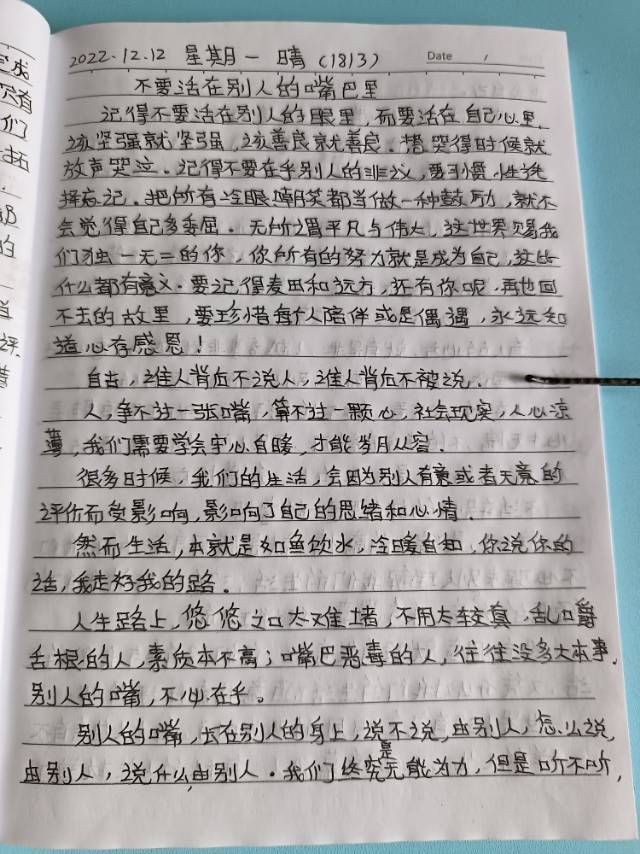 2022.12.12 星期一 晴(1813) Date /
不要活在别人的嘴巴里
记得不要活在别人的眼里,而要活在自己心里,
该坚强就坚强,该善良就善良。想哭得时候就
放声哭泣。记得不要在乎别人的非议,要习惯性选
择忘记。把所有冷眼嘲笑都当做一种鼓励,就不
会觉得自己多委屈。无所谓平凡与伟大,这世界赐我
们独一无二的你,你所有的努力就是成为自己,这比
什么都有意义。要记得麦田和远方,还有你呢。再也回
不去的故里,要珍惜每个人陪伴或是偶遇,永远知
道心存感恩!
自古,谁人背后不说人,谁人背后不被说。
人,争不过一张嘴,算不过一颗心,社会现实,人心凉
薄,我们需要学会宇心自暖,才能岁月从容。
很多时候,我们的生活,会因为别人有意或者无意的
评价而受影响,影响了自己的思绪和心情。
然而生活,本就是如鱼饮水,冷暖自知,你说你的
话,我走好我的路。
人生路上,悠悠之口太难堵,不用太较真,乱口嚼
舌根的人,素质本不高;嘴巴恶毒的人,往往没多大本事,
别人的嘴,不必在乎。
别人的嘴,长在别人的身上,说不说,由别人,怎么说,
由别人,说什么由别人。我们终究是无能为力,但是听不听,